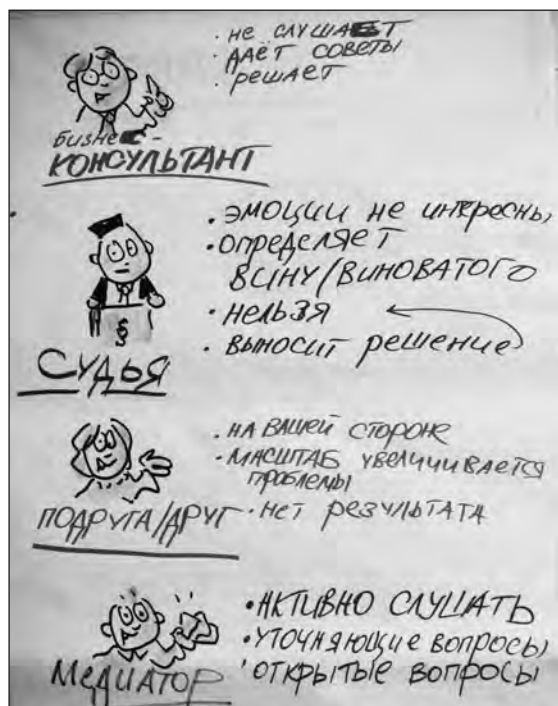 · не слушает
· даёт советы
· решает
бизнес-
консультант
· эмоции не интересны
· определяет
вину/виноватого
· нельзя
· выносит решение
§
Судья
· на вашей стороне
· масштаб увеличивается
проблемы
· нет результата
подруга/друг
· Активно слушать
· уточняющие вопросы
· открытые вопросы
Медиатор